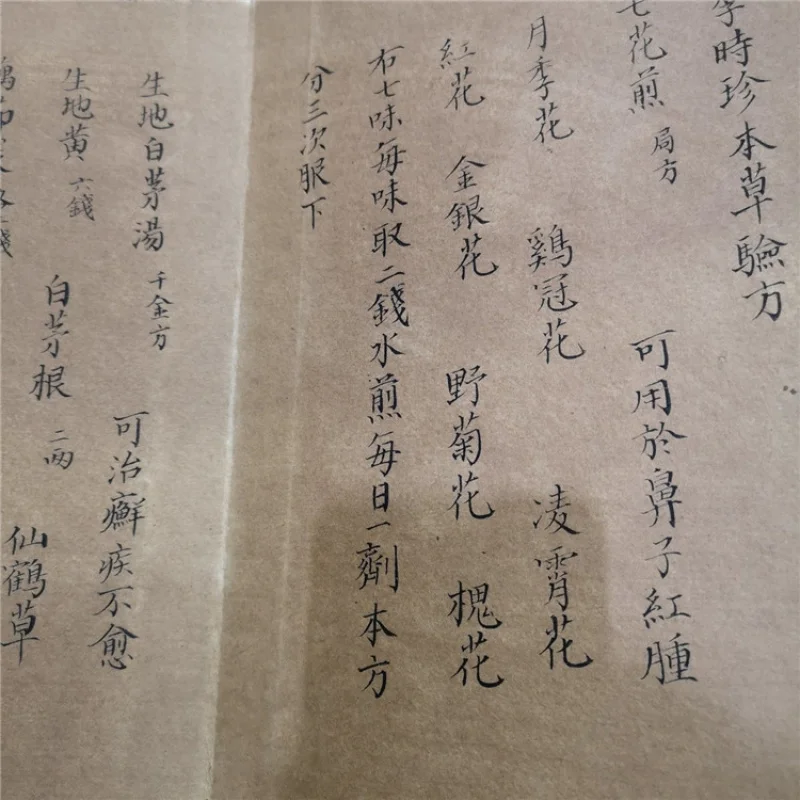 李時珍本草驗方
七花煎 局方 可用於鼻子紅腫
月季花 鷄冠花 凌霄花
紅花 金銀花 野菊花 槐花
右七味每味取二錢水煎每日一劑本方
分三次服下
生地白茅湯 千金方 可治癬疾不愈
生地黃 六錢 白茅根 二兩 仙鶴草